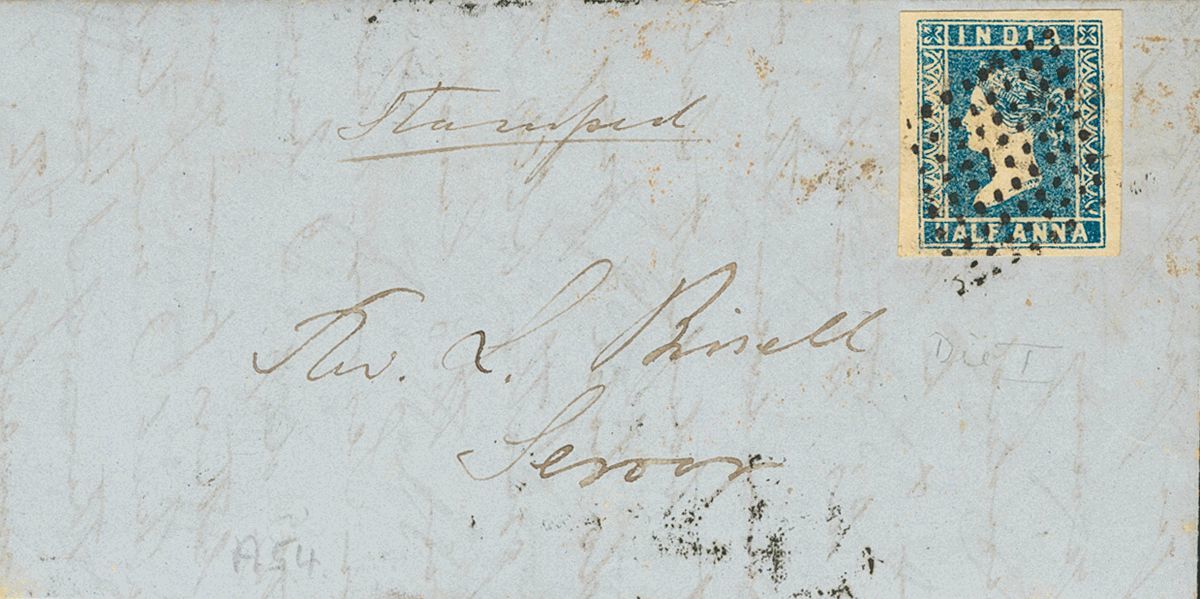 INDIA
HALF ANNA
Stamped
Rev. L. Bissell
Seroor
Die I
A54.